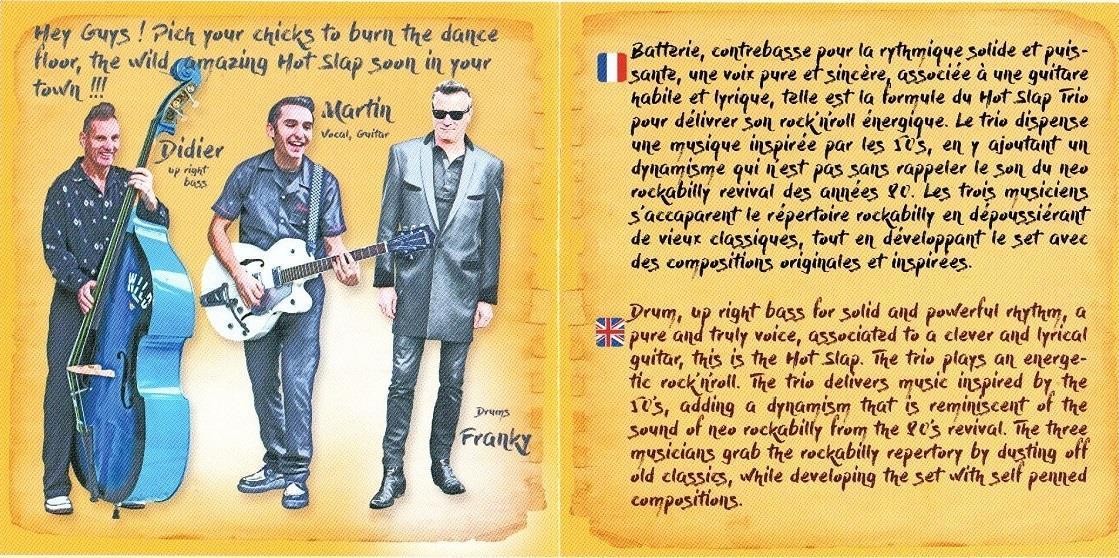 Hey Guys ! Pich your chicks to burn the dance
floor, the wild, amazing Hot Slap soon in your
town !!!
Didier
up right
bass
Martin
Vocal, Guitar
WILD
Drums
Franky
Batterie, contrebasse pour la rythmique solide et puis-
sante, une voix pure et sincère, associée à une guitare
habile et lyrique, telle est la formule du Hot Slap Trio
pour délivrer son rock'n'roll énergique. Le trio dispense
une musique inspirée par les 50's, en y ajoutant un
dynamisme qui n'est pas sans rappeler le son du neo
rockabilly revival des années 80. Les trois musiciens
s'accaparent le répertoire rockabilly en dépoussiérant
de vieux classiques, tout en développant le set avec
des compositions originales et inspirées.
Drum, up right bass for solid and powerful rhythm, a
pure and truly voice, associated to a clever and lyrical
guitar, this is the Hot Slap. The trio plays an energe-
tic rock'n'roll. The trio delivers music inspired by the
50's, adding a dynamism that is reminiscent of the
sound of neo rockabilly from the 80's revival. The three
musicians grab the rockabilly repertory by dusting off
old classics, while developing the set with self penned
compositions.